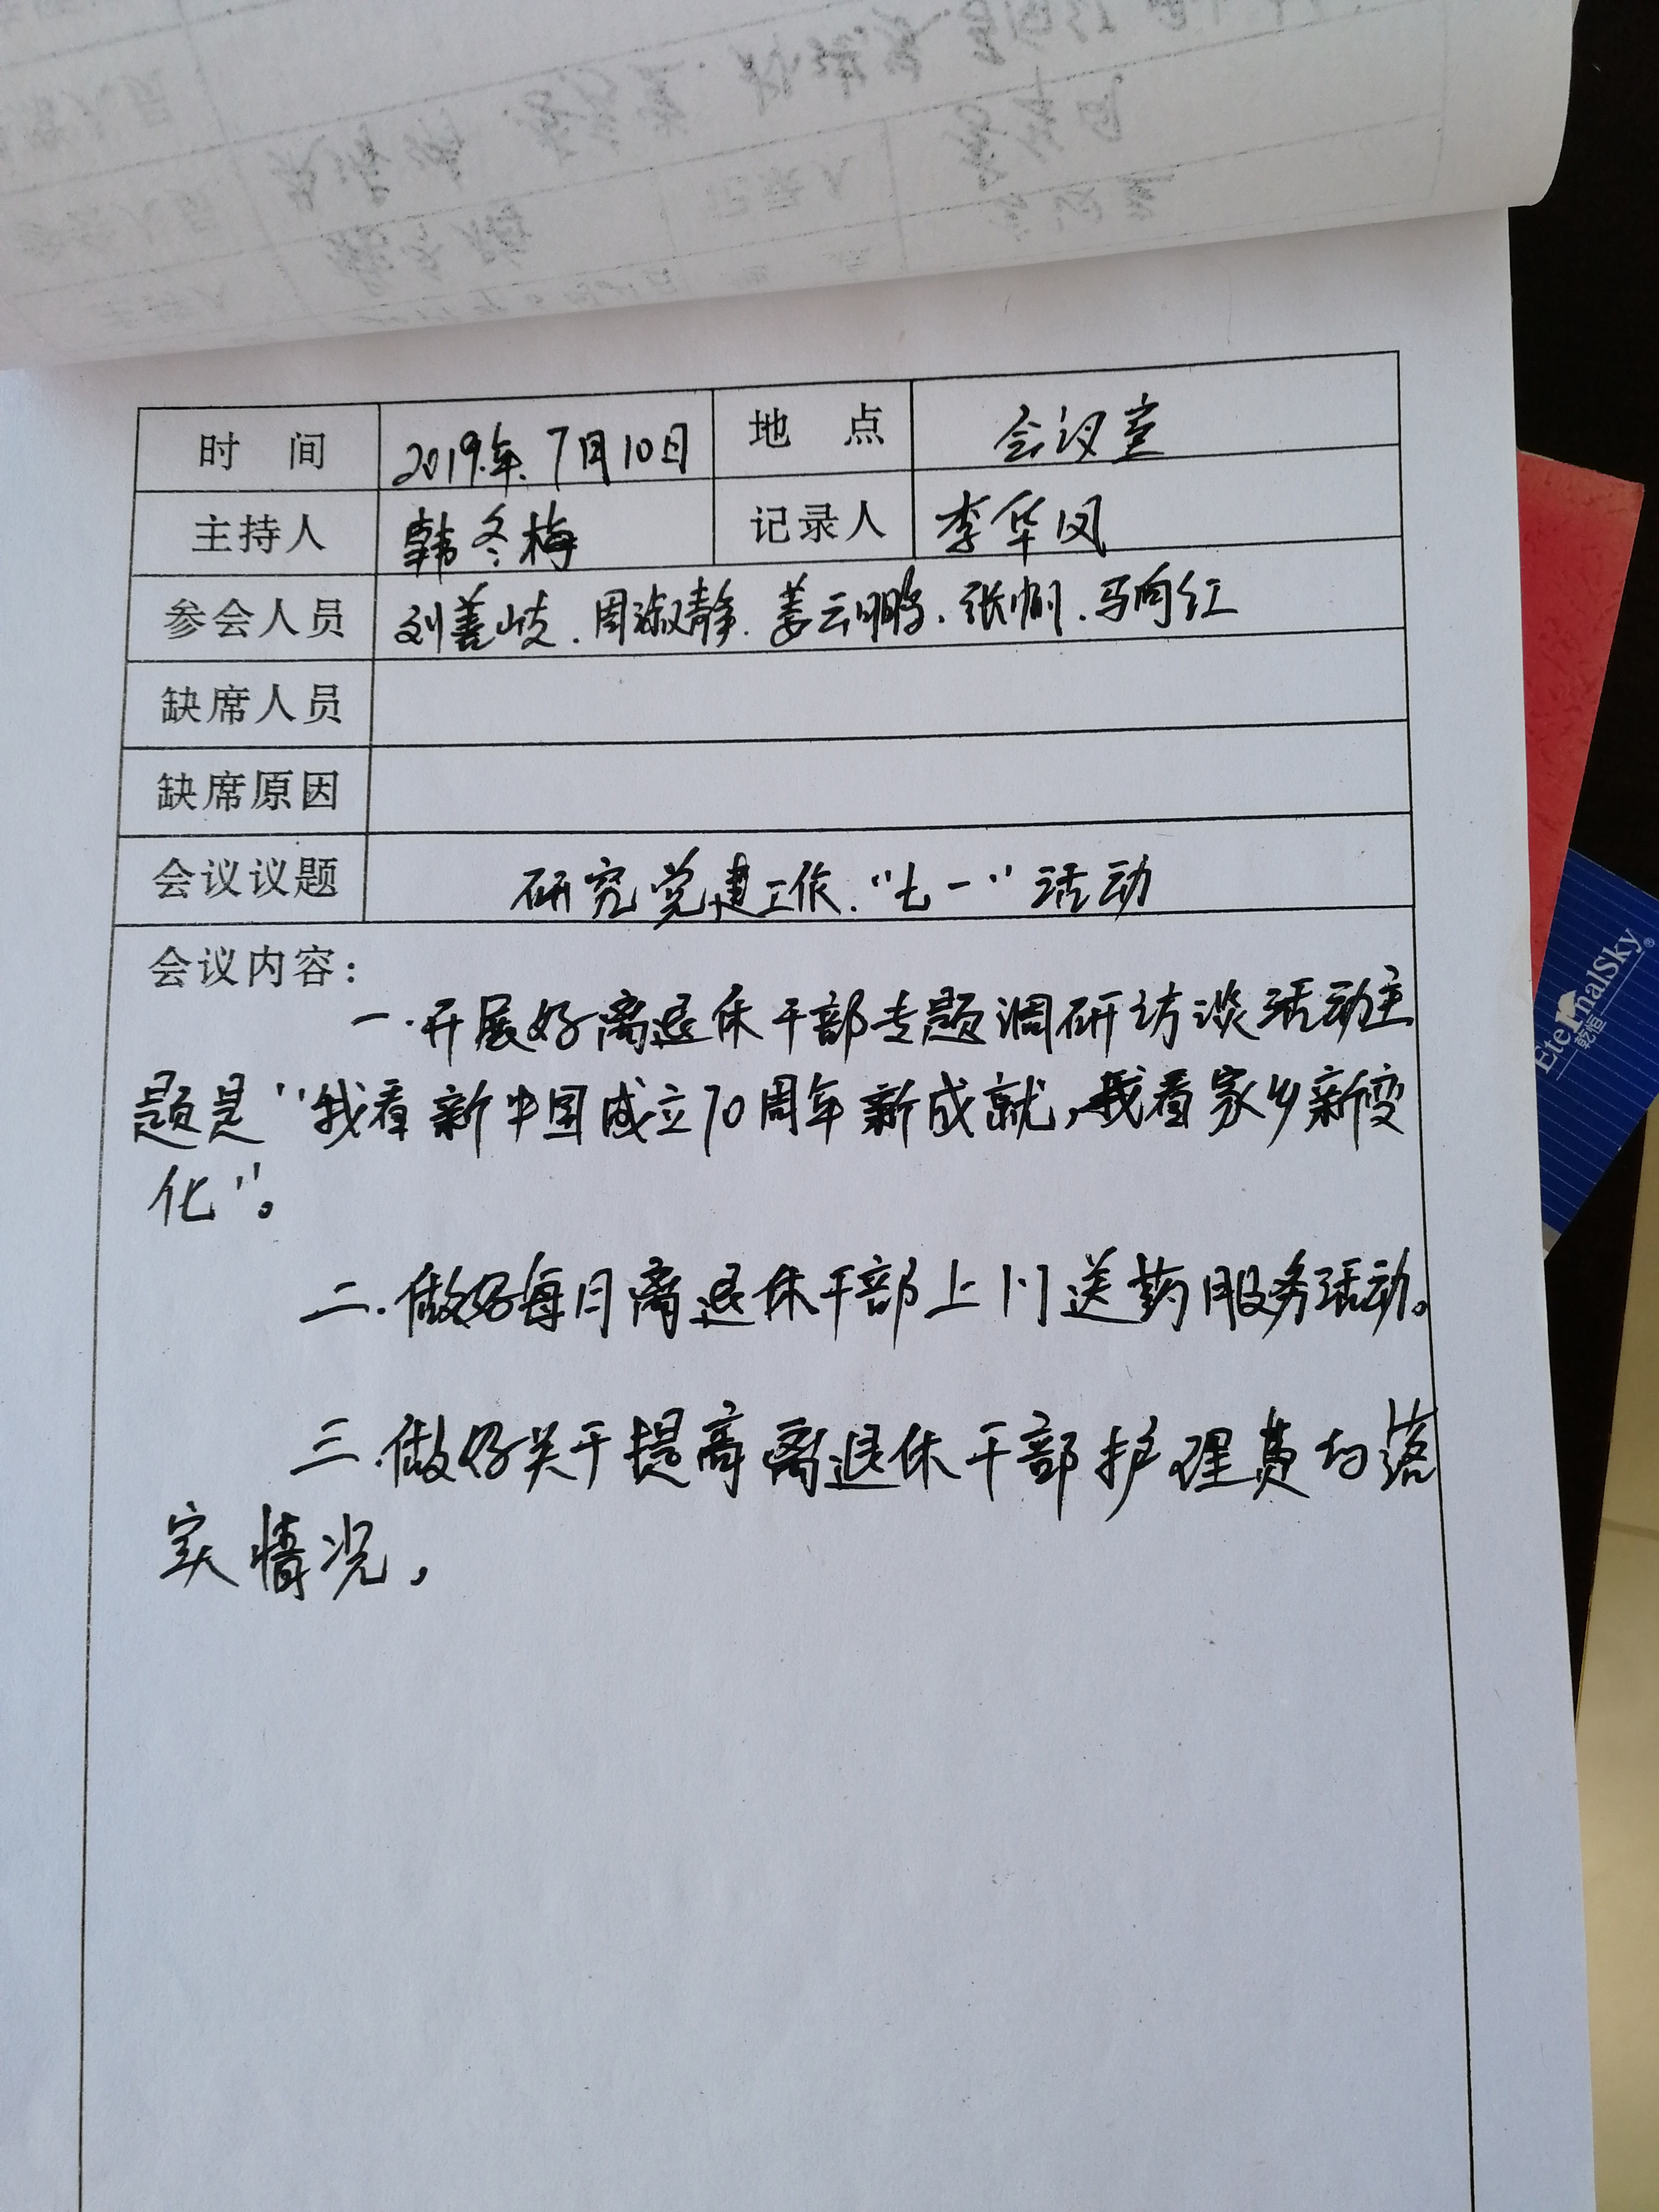 时 间 2019年.7月10日 地 点 会议室
主持人 韩冬梅 记录人 李华凤
参会人员 刘善岐.周淑静.姜云鹏.张帆.马向红
缺席人员
缺席原因
会议议题 研究党建工作."七一"活动
会议内容：
一.开展好离退休干部专题调研访谈活动主
题是"我看新中国成立70周年新成就,我看家乡新变
化"。
二.做好每月离退休干部上门送药服务活动。
三.做好关于提高离退休干部护理费的落
实情况,
EternalSky®
乾恒